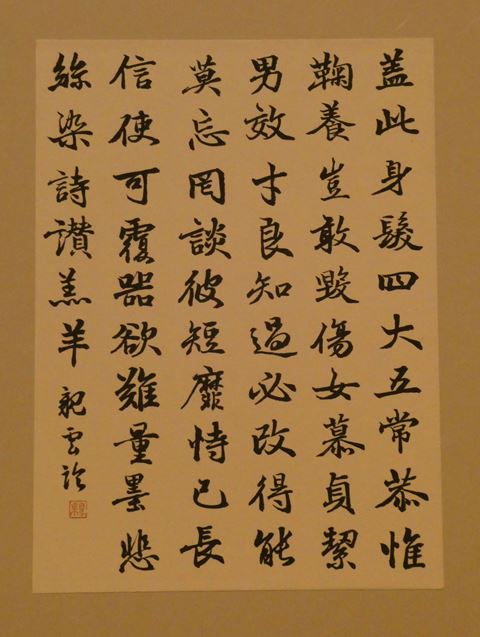 盖此身髮四大五常恭惟
鞠養豈敢毀傷女慕貞絜
男效才良知過必改得能
莫忘罔談彼短靡恃己長
信使可覆器欲難量墨悲
絲染詩讚羔羊